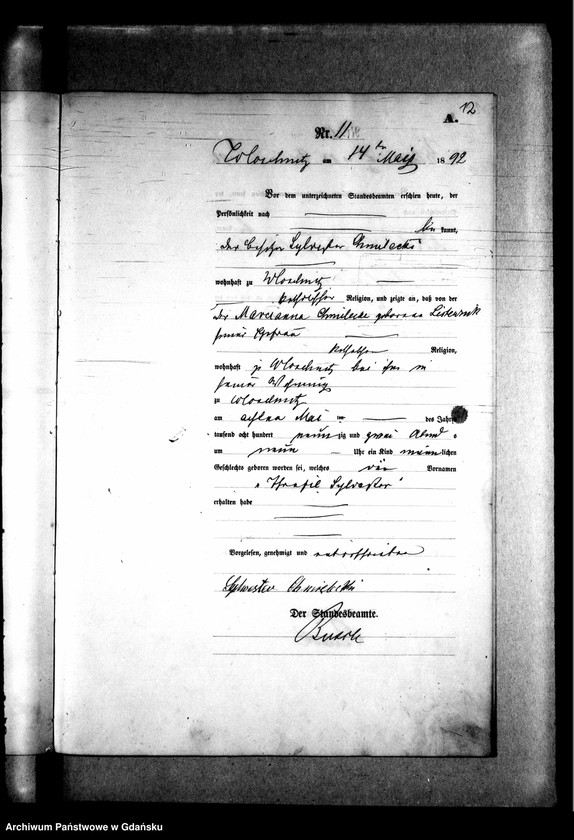 12
A.
Nr. 11
am 14ten Mai 1892
Vor dem unterzeichneten Standesbeamten erschien heute, der
Persönlichkeit nach
kannt,
der Besitzer Sylvester
wohnhaft zu
katholischer Religion, und zeigte an, daß von der
der Marcianna geborene
seiner Ehefrau
katholischer Religion,
wohnhaft zu bei ihm in
seiner Wohnung
zu
am achten Mai des Jahres
tausend acht hundert neunzig und zwei Abends
um neun Uhr ein Kind männlichen
Geschlechts geboren worden sei, welches die Vornamen
Sylvester
erhalten habe
Vorgelesen, genehmigt und unterschrieben
Sylwester
Der Standesbeamte.
Archiwum Państwowe w Gdańsku